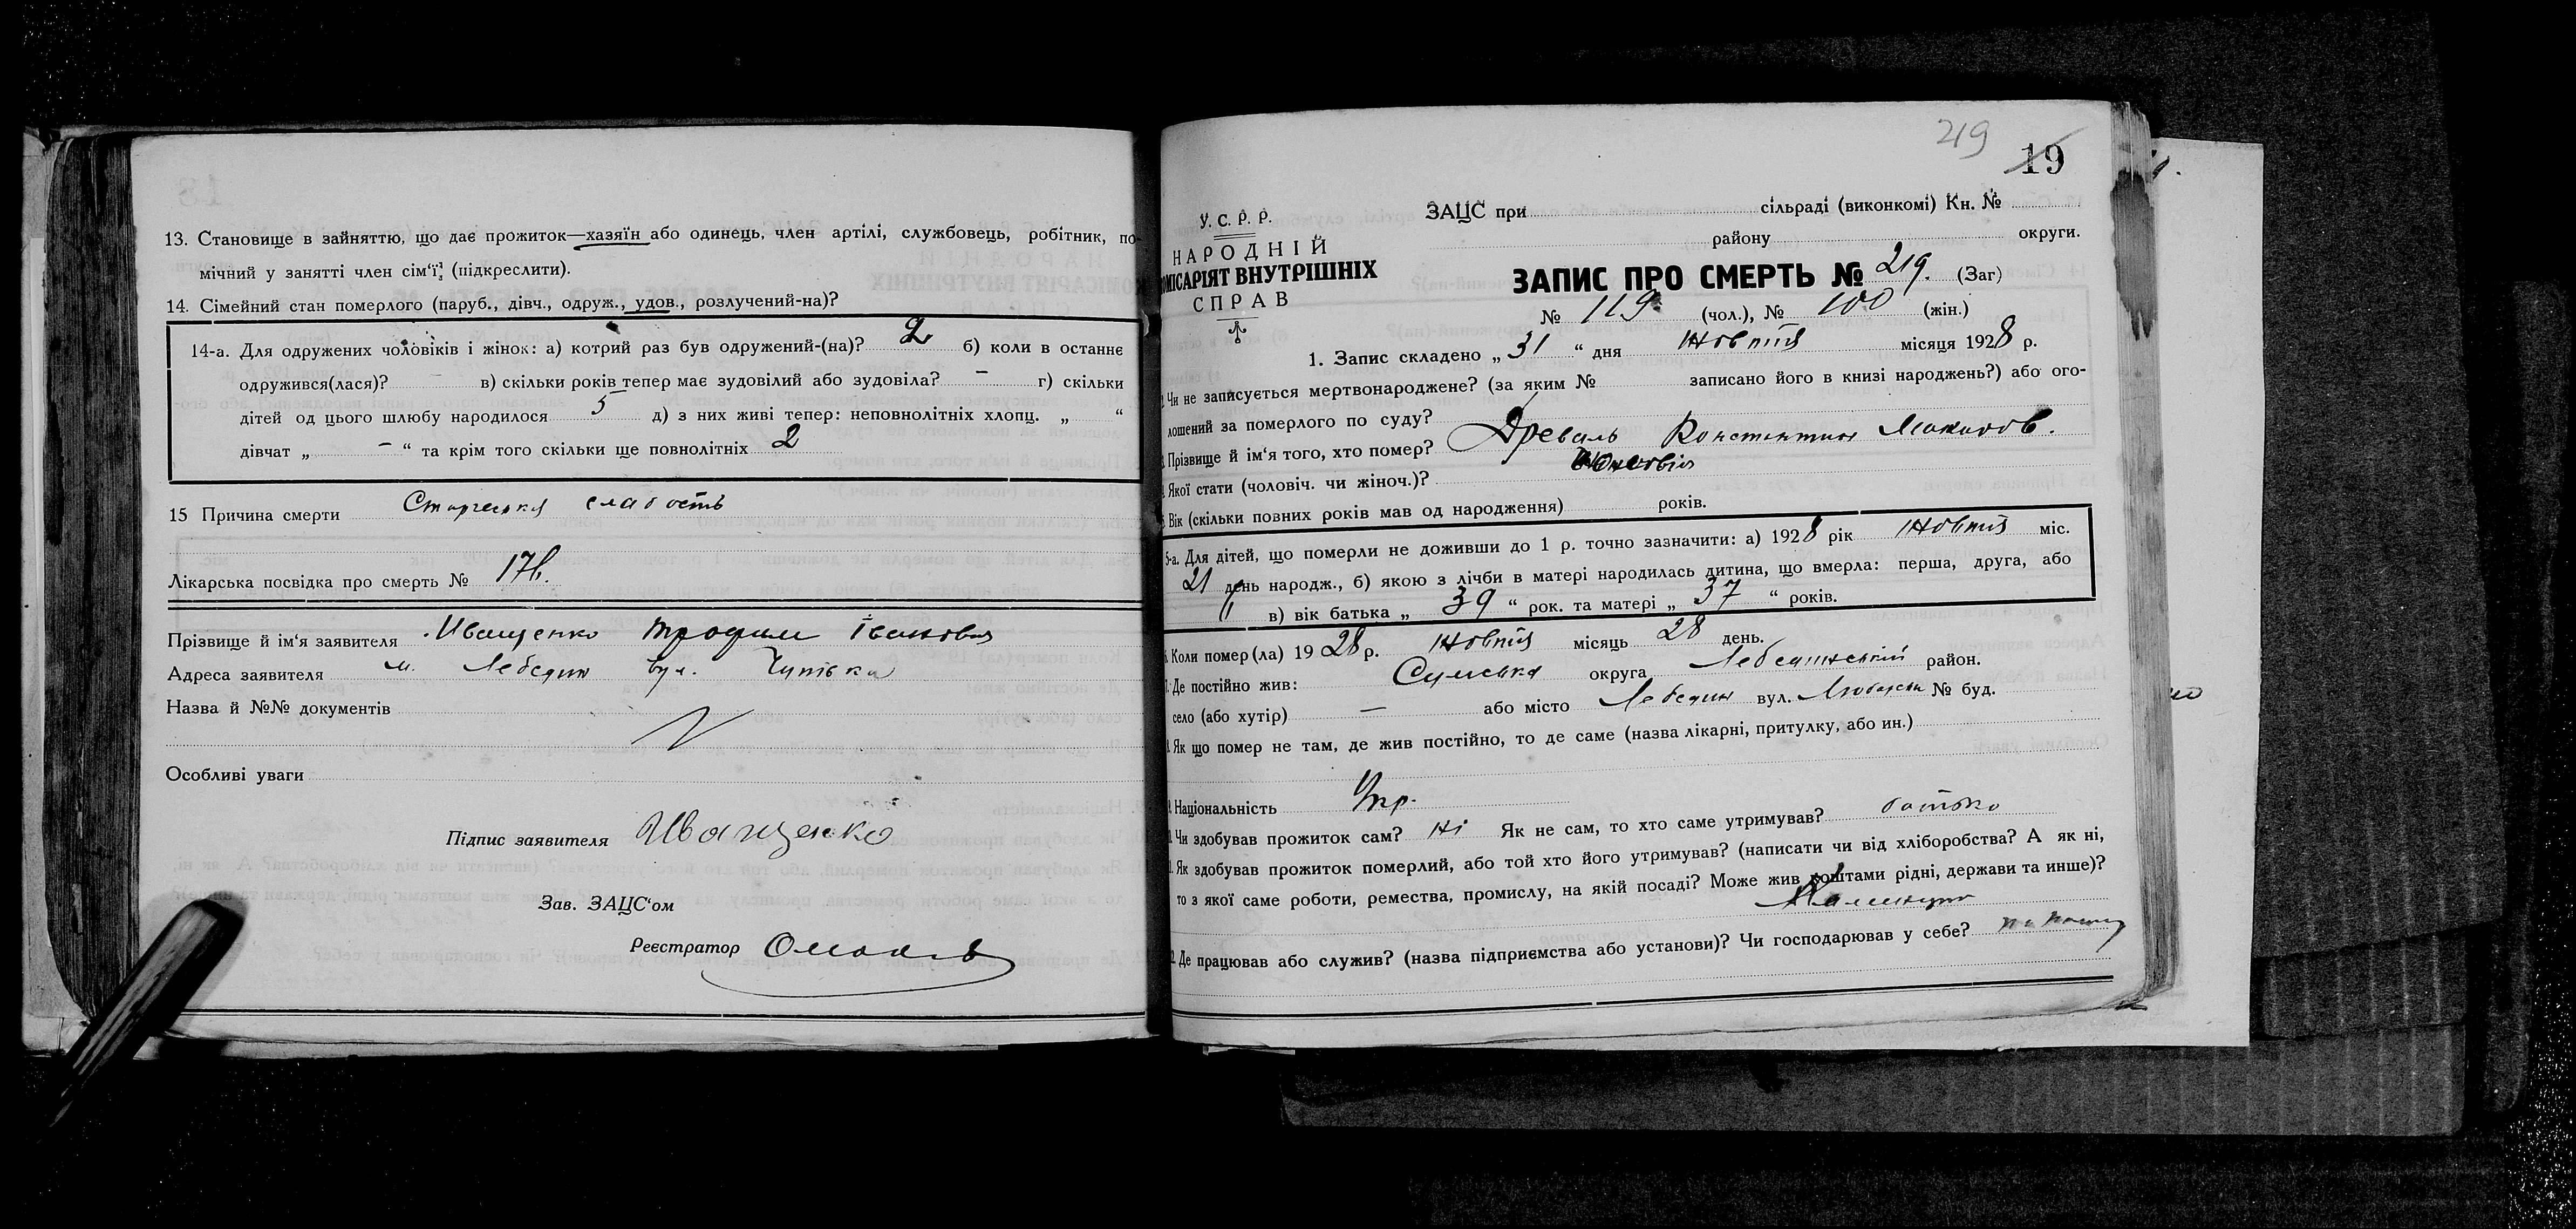 13. Становище в зайняттю, що дає прожиток—хазяїн або одинець, член артілі, службовець, робітник, по-
мічний у занятті член сім'ї, (підкреслити).
14. Сімейний стан померлого (паруб., дівч., одруж., удов., розлучений-на)?
14-а. Для одружених чоловіків і жінок: а) котрий раз був одружений-(на)? 2 б) коли в останнє
одружився(лася)? — в) скільки років тепер має зудовілий або зудовіла? — г) скільки
дітей од цього шлюбу народилося 5 д) з них живі тепер: неповнолітніх хлопц. „ “
дівчат „ — “ та крім того скільки ще повнолітніх 2
15 Причина смерти Старческая слабость
Лікарська посвідка про смерть №
Прізвище й ім'я заявителя Иващенко Трофим Іванович
Адреса заявителя м. Лебедин вул.
Назва й №№ документів
Особливі уваги
Підпис заявителя Иващенко
Зав. ЗАЦС'ом
Реєстратор
219
19
У. С. Р. Р.
НАРОДНІЙ
ОМІСАРІЯТ ВНУТРІШНІХ
СПРАВ
ЗАЦС при сільраді (виконкомі) Кн. №
району округи.
ЗАПИС ПРО СМЕРТЬ № 219. (Заг)
№ 119 (чол.), № 100 (жін.)
1. Запис складено „ 31 “ дня Жовтня місяця 1928 р.
Чи не записується мертвонароджене? (за яким № записано його в книзі народжень?) або ого-
лошений за померлого по суду?
Прізвище й ім'я того, хто помер? Древаль Константин
Якої стати (чоловіч. чи жіноч.)?
Вік (скільки повних років мав од народження) років.
5-а. Для дітей, що померли не доживши до 1 р. точно зазначити: а) 1928 рік Жовтня міс.
21 день народж., б) якою з лічби в матері народилась дитина, що вмерла: перша, друга, або
в) вік батька „ 39 “ рок. та матері „ 37 “ років.
Коли помер(ла) 1928 р. Жовтня місяць 28 день.
Де постійно жив: Сумська округа Лебединський район.
село (або хутір) — або місто Лебедин вул. № буд.
Як що помер не там, де жив постійно, то де саме (назва лікарні, притулку, або ин.)
Національність Укр.
Чи здобував прожиток сам? Ні Як не сам, то хто саме утримував? батько
Як здобував прожиток померлий, або той хто його утримував? (написати чи від хліборобства? А як ні,
то з якої саме роботи, ремества, промислу, на якій посаді? Може жив коштами рідні, держави та инше)?
Де працював або служив? (назва підприємства або установи)? Чи господарював у себе?